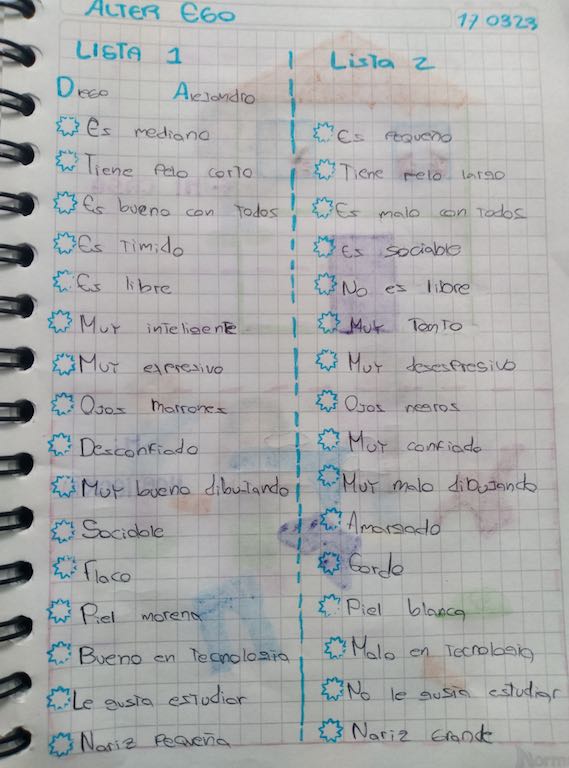 ALTER EGO 17 0323
LISTA 1
Diego Alejandro
Es mediano
Tiene pelo corto
Es bueno con todos
Es timido
Es libre
Muy inteligente
Muy expresivo
Ojos marrones
Desconfiado
Muy bueno dibujando
Sociable
Flaco
Piel morena
Bueno en tecnologiia
Le gusta estudiar
Nariz pequeña
Lista 2
Es pequeño
Tiene pelo largo
Es malo con todos
Es sociable
No es libre
Muy tonto
Muy desespresivo
Ojos negros
Muy confiado
Muy malo dibujando
Amargado
Gordo
Piel blanca
Malo en tecnologia
No le gusta estudiar
Nariz grande
Norm